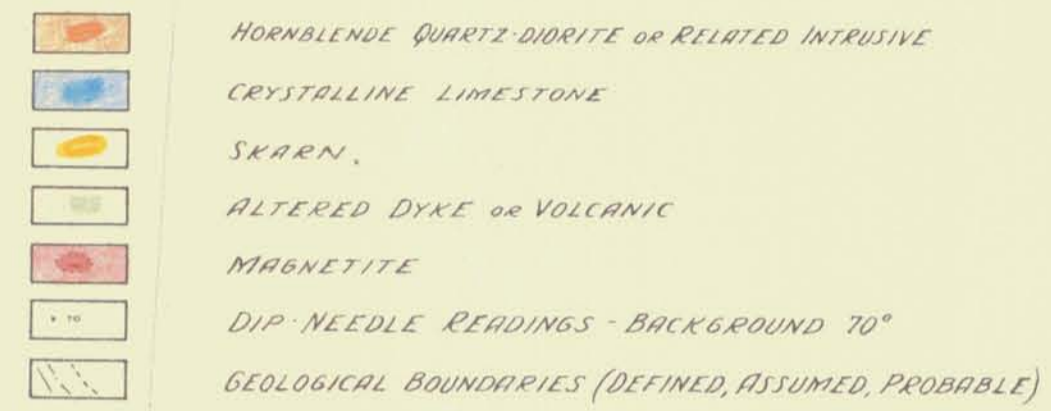 HORNBLENDE QUARTZ-DIORITE OR RELATED INTRUSIVE
CRYSTALLINE LIMESTONE
SKARN.
ALTERED DYKE OR VOLCANIC
MAGNETITE
70 DIP-NEEDLE READINGS - BACKGROUND 70°
GEOLOGICAL BOUNDARIES (DEFINED, ASSUMED, PROBABLE)